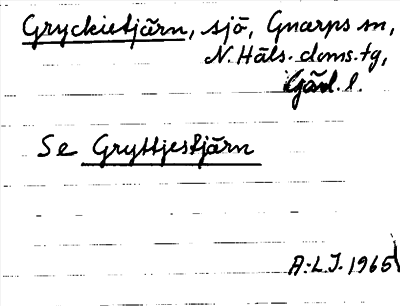 Gryckietjärn, sjö, Gnarps sn,
N. Häls. doms. tg,
Gävl. l.
Se Gryttjestjärn
A.-L.J. 1965